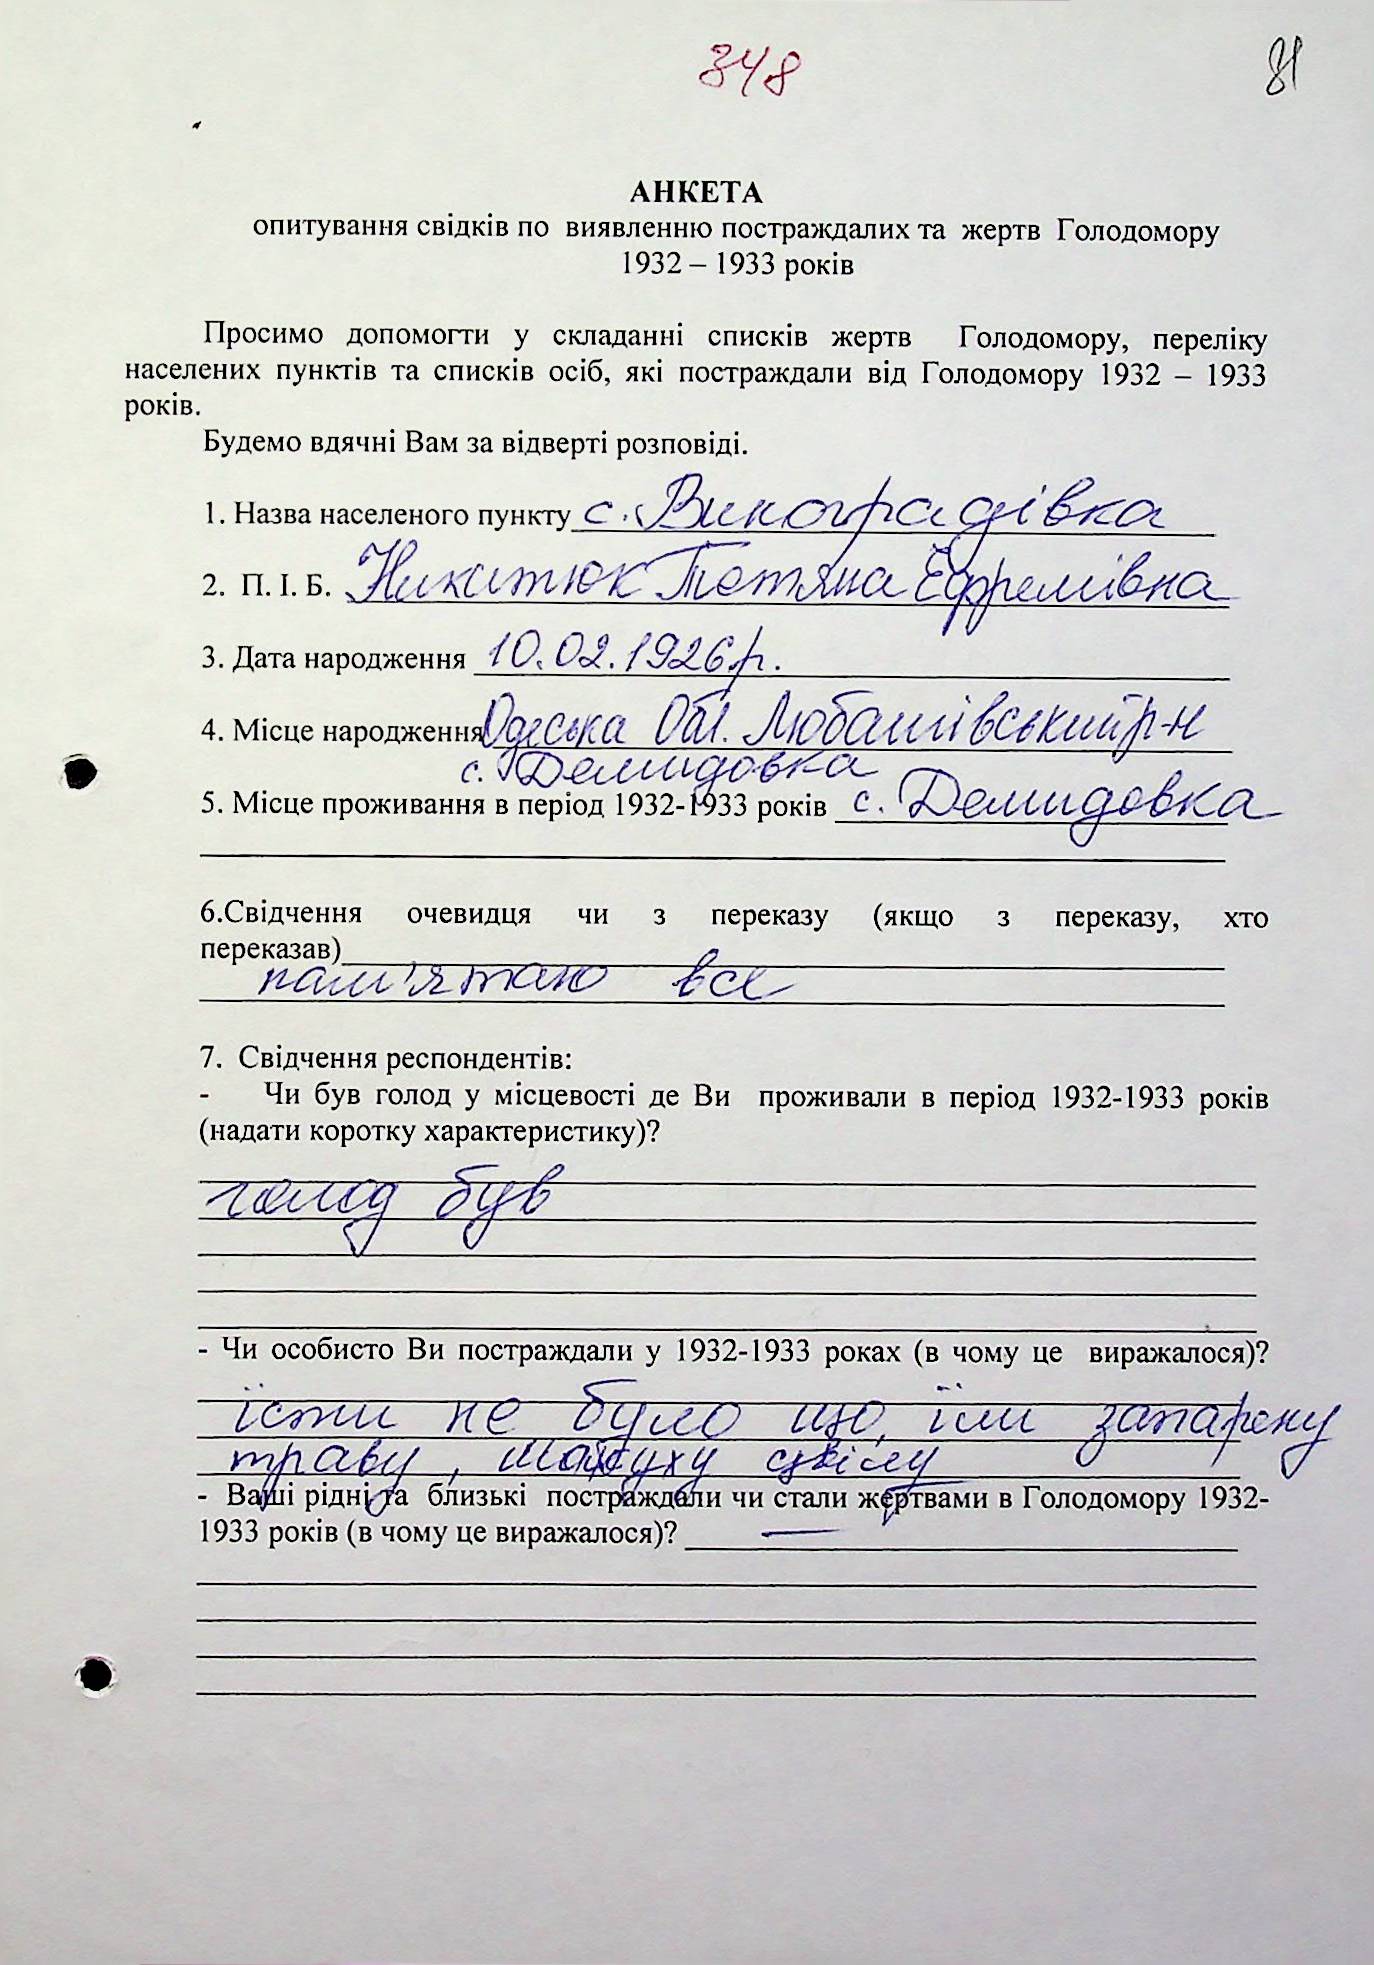 348
81
АНКЕТА
опитування свідків по виявленню постраждалих та жертв Голодомору
1932 – 1933 років
Просимо допомогти у складанні списків жертв Голодомору, переліку
населених пунктів та списків осіб, які постраждали від Голодомору 1932 – 1933
років.
Будемо вдячні Вам за відверті розповіді.
1. Назва населеного пункту с. Виноградівка
2. П. І. Б. Никитюк Тетяна Єфремівна
3. Дата народження 10.02.1926р.
4. Місце народження Одеська Обл. Любашівський р-н
с. Демидовка
5. Місце проживання в період 1932-1933 років с. Демидовка
6.Свідчення очевидця чи з переказу (якщо з переказу, хто
переказав)
пам'ятаю все
7. Свідчення респондентів:
- Чи був голод у місцевості де Ви проживали в період 1932-1933 років
(надати коротку характеристику)?
голод був
- Чи особисто Ви постраждали у 1932-1933 роках (в чому це виражалося)?
їсти не було що, їли запарену
траву, макуху цвілу
- Ваші рідні та близькі постраждали чи стали жертвами в Голодомору 1932-
1933 років (в чому це виражалося)? —